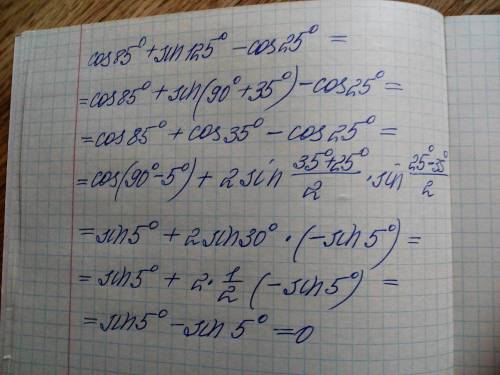 cos85° + sin125° - cos25° =
= cos85° + sin(90° + 35°) - cos25° =
= cos85° + cos35° - cos25° =
= cos(90° - 5°) + 2sin (35° + 25°)/2 · sin (25° - 35°)/2
= sin5° + 2sin30° · (-sin5°) =
= sin5° + 2 · 1/2 (-sin5°) =
= sin5° - sin5° = 0